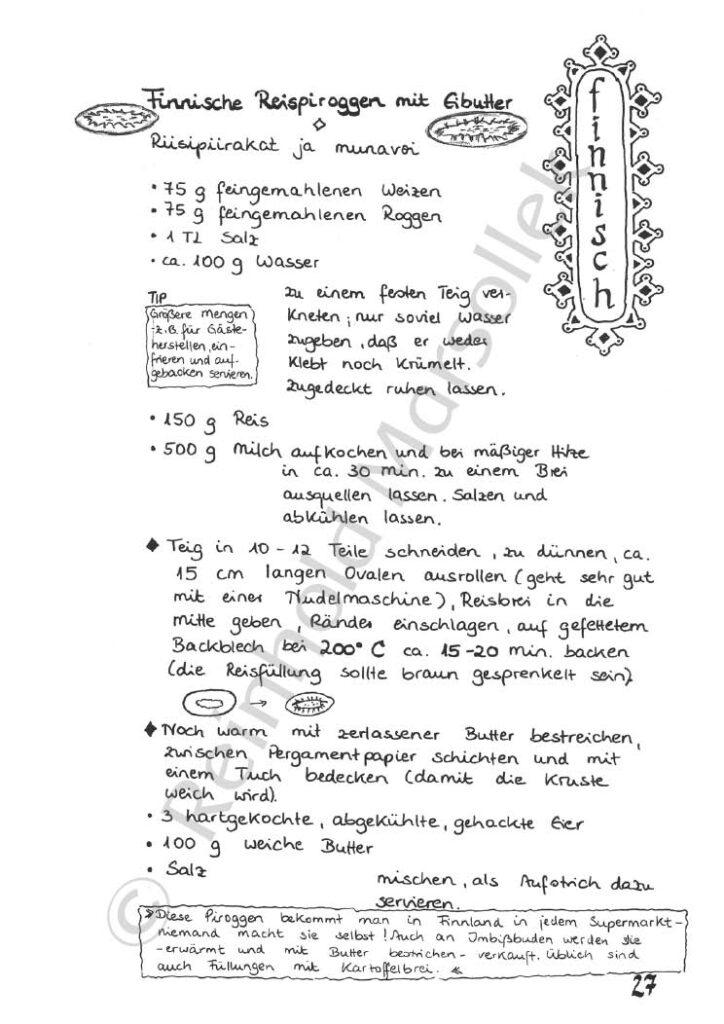 Finnische Reispiroggen mit Eibutter
Riisipiirakat ja munavoi
finnisch
• 75 g feingemahlenen Weizen
• 75 g feingemahlenen Roggen
• 1 TL Salz
• ca. 100 g Wasser
zu einem festen Teig ver-
kneten; nur soviel Wasser
zugeben, daß er weder
klebt noch krümelt.
zugedeckt ruhen lassen.
TIP
Größere Mengen
-z.B. für Gäste-
herstellen, ein-
frieren und auf-
gebacken servieren.
• 150 g Reis
• 500 g Milch aufkochen und bei mäßiger Hitze
in ca. 30 min. zu einem Brei
ausquellen lassen. Salzen und
abkühlen lassen.
◆ Teig in 10-12 Teile schneiden, zu dünnen, ca.
15 cm langen Ovalen ausrollen (geht sehr gut
mit einer Nudelmaschine), Reisbrei in die
Mitte geben, Ränder einschlagen, auf gefettetem
Backblech bei 200° C ca. 15-20 min. backen
(die Reisfüllung sollte braun gesprenkelt sein)
→
◆ Noch warm mit zerlassener Butter bestreichen,
zwischen Pergamentpapier schichten und mit
einem Tuch bedecken (damit die Kruste
weich wird).
• 3 hartgekochte, abgekühlte, gehackte Eier
• 100 g weiche Butter
• Salz
mischen, als Aufstrich dazu
servieren.
Diese Piroggen bekommt man in Finnland in jedem Supermarkt-
niemand macht sie selbst! Auch an Imbißbuden werden sie
-erwärmt und mit Butter bestrichen- verkauft. Üblich sind
auch Füllungen mit Kartoffelbrei.
27
© Reinhold Marsollek